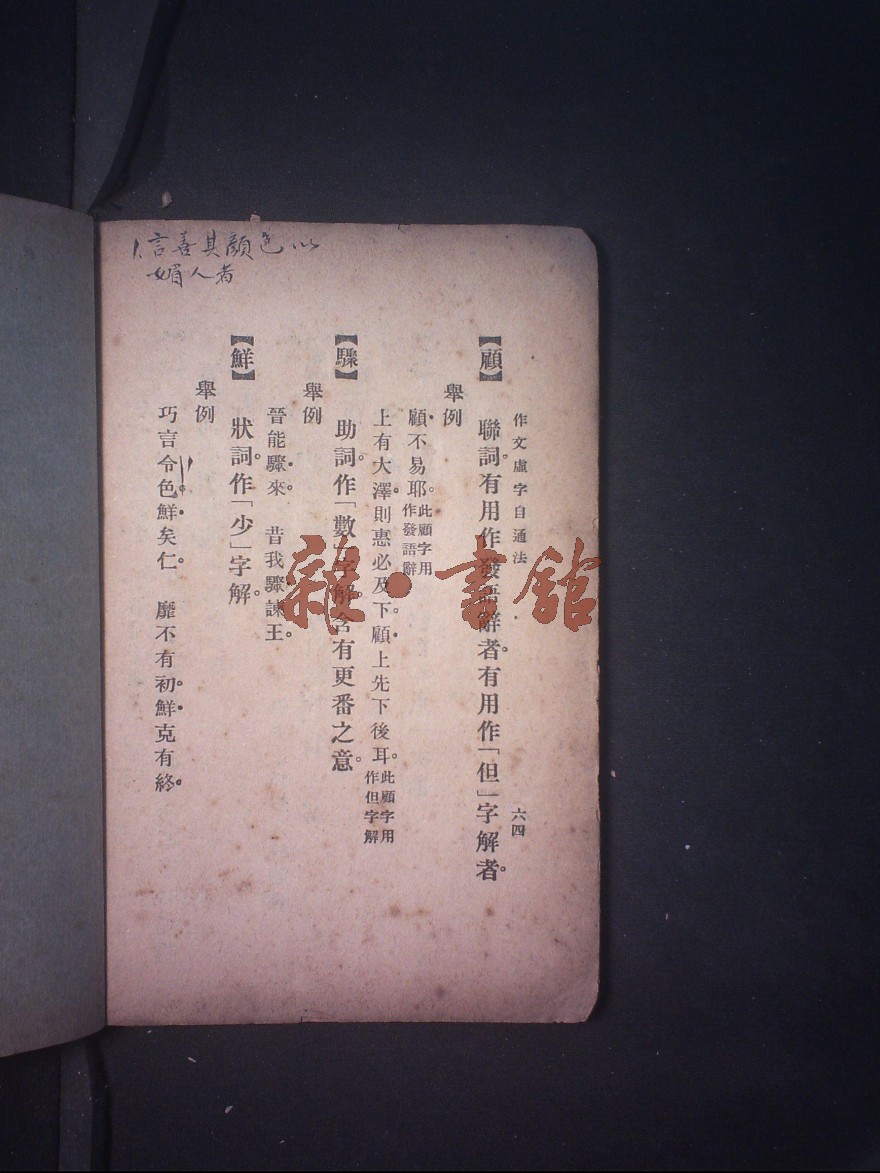 1.言喜其顏色以
媚人者
作文虛字自通法
六四
【顧】 聯詞。有用作發語辭者。有用作「但」字解者。
舉例
顧不易耶。此顧字用作發語辭
上有大澤。則惠必及下。顧上先下後耳。此顧字用作但字解
【驟】 助詞。作「數」字解。含有更番之意。
舉例
晉能驟來。 昔我驟諫王。
【鮮】 狀詞。作「少」字解。
舉例
巧言令色。鮮矣仁。 靡不有初。鮮克有終。
雜·書館